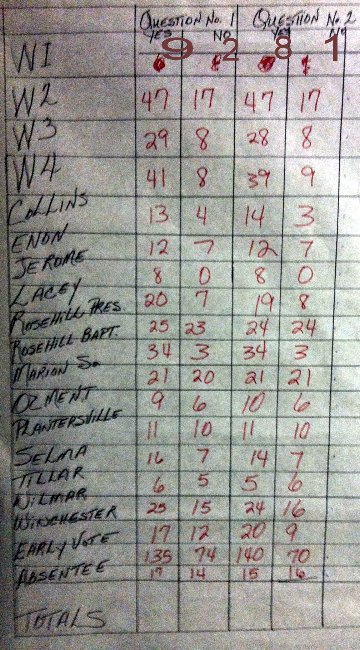 QUESTION No. 1 QUESTION No. 2
YES NO YES NO
W1 9 2 8 1
W2 47 17 47 17
W3 29 8 28 8
W4 41 8 39 9
COLLINS 13 4 14 3
ENON 12 7 12 7
JEROME 8 0 8 0
LACEY 20 7 19 8
ROSEHILL PRES. 25 23 24 24
ROSEHILL BAPT. 34 3 34 3
MARION SO. 21 20 21 21
OZMENT 9 6 10 6
PLANTERSVILLE 11 10 11 10
SELMA 16 7 14 7
TILLAR 6 5 5 6
WILMAR 25 15 24 16
WINCHESTER 17 12 20 9
EARLY VOTE 135 74 140 70
ABSENTEE 17 14 15 16
TOTALS